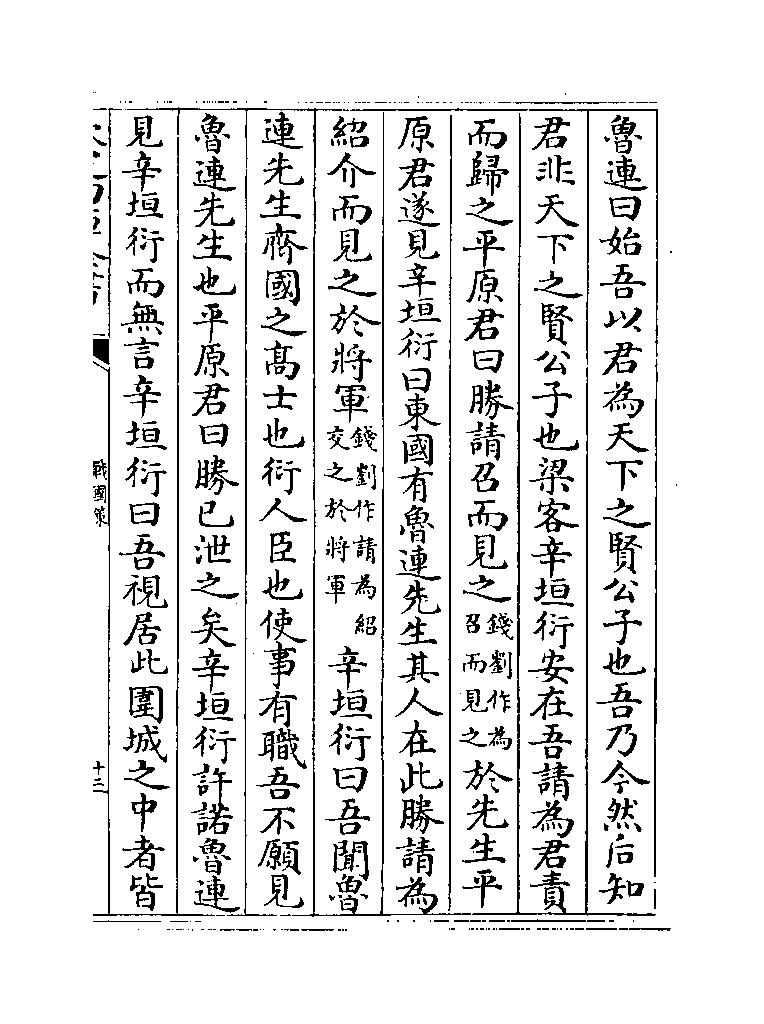 魯連曰始吾以君為天下之賢公子也吾乃今然后知
君非天下之賢公子也梁客辛垣衍安在吾請為君責
而歸之平原君曰勝請召而見之錢劉作為召而見之於先生平
原君遂見辛垣衍曰東國有魯連先生其人在此勝請為
紹介而見之於將軍錢劉作請為紹交之於將軍辛垣衍曰吾聞魯
連先生齊國之髙士也衍人臣也使事有職吾不願見
魯連先生也平原君曰勝已泄之矣辛垣衍許諾魯連
見辛垣衍而無言辛垣衍曰吾視居此圍城之中者皆
戰國策
十三